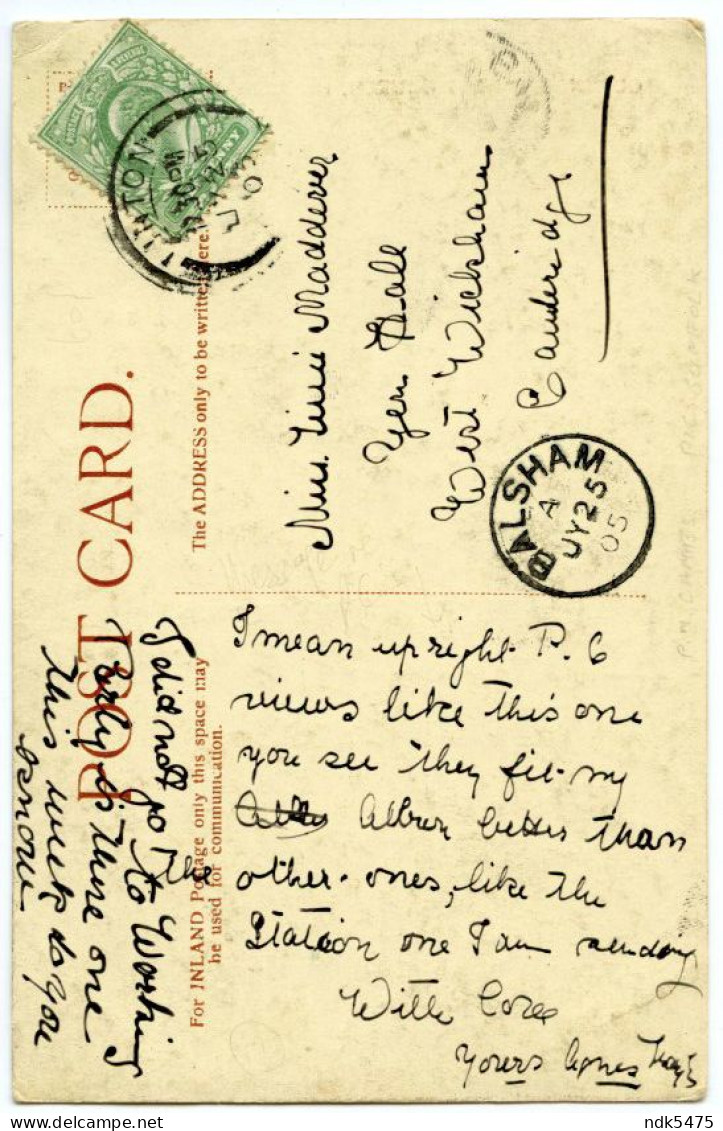 POST CARD.
The ADDRESS only to be written here.
For INLAND Postage only this space may
be used for communication.
LINTON
JY 25
05
Miss Maddever
Yen Hall
West Wickham
Cambridge
BALSHAM
A
JY 25
05
I mean upright P.C
views like this one
you see they fit my
Album better than
other ones, like the
Station one I am sending
With Love
Yours Agnes
I did not go to the Working
Party is there one
this week do you
know
P.M. CHAPPEL
SUFFOLK
ndk5475